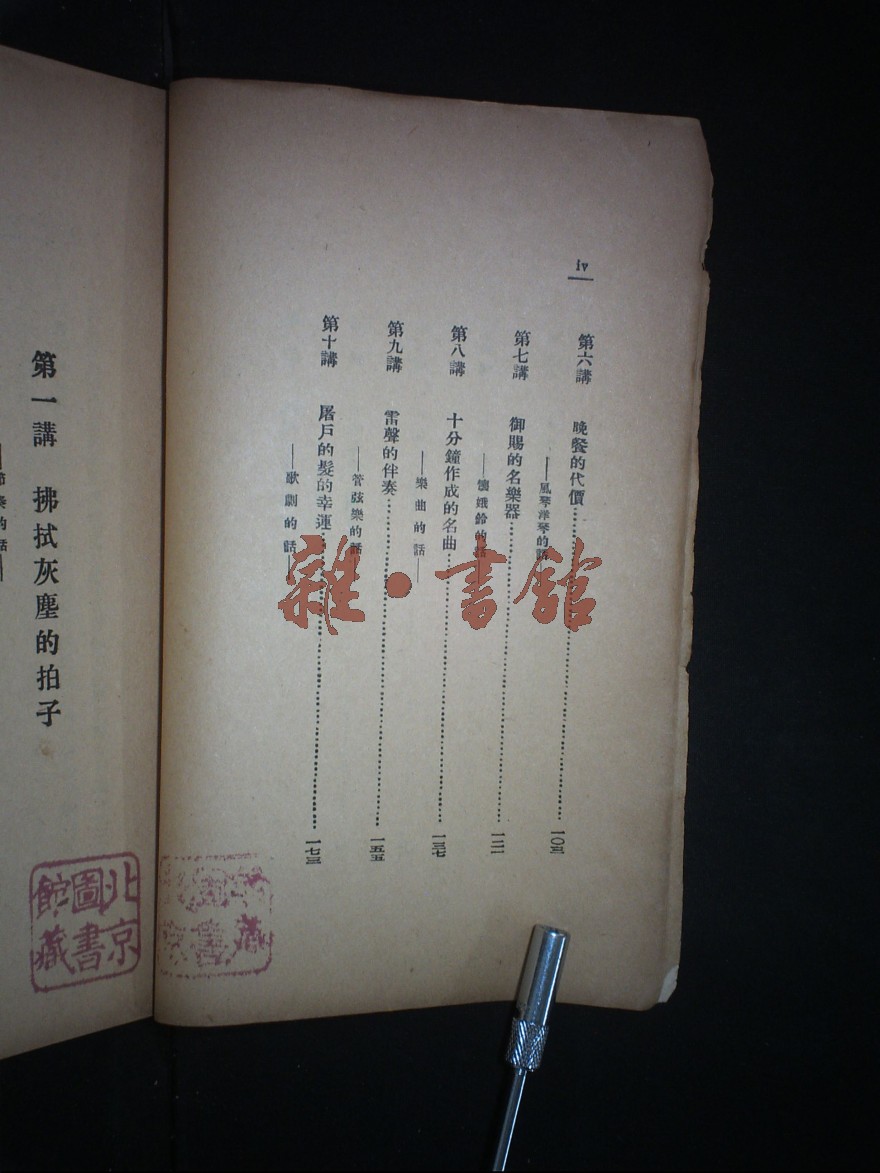 iv
第六講 晚餐的代價……一〇三
——風琴洋琴的話——
第七講 御賜的名樂器……一二一
——懷娥鈴的話——
第八講 十分鐘作成的名曲……一三七
——樂曲的話——
第九講 雷聲的伴奏……一五五
——管弦樂的話——
第十講 屠戶的髮的幸運……一七三
——歌劇的話——
第一講 拂拭灰塵的拍子
——節奏的話——
雜·書館
北京圖書館藏